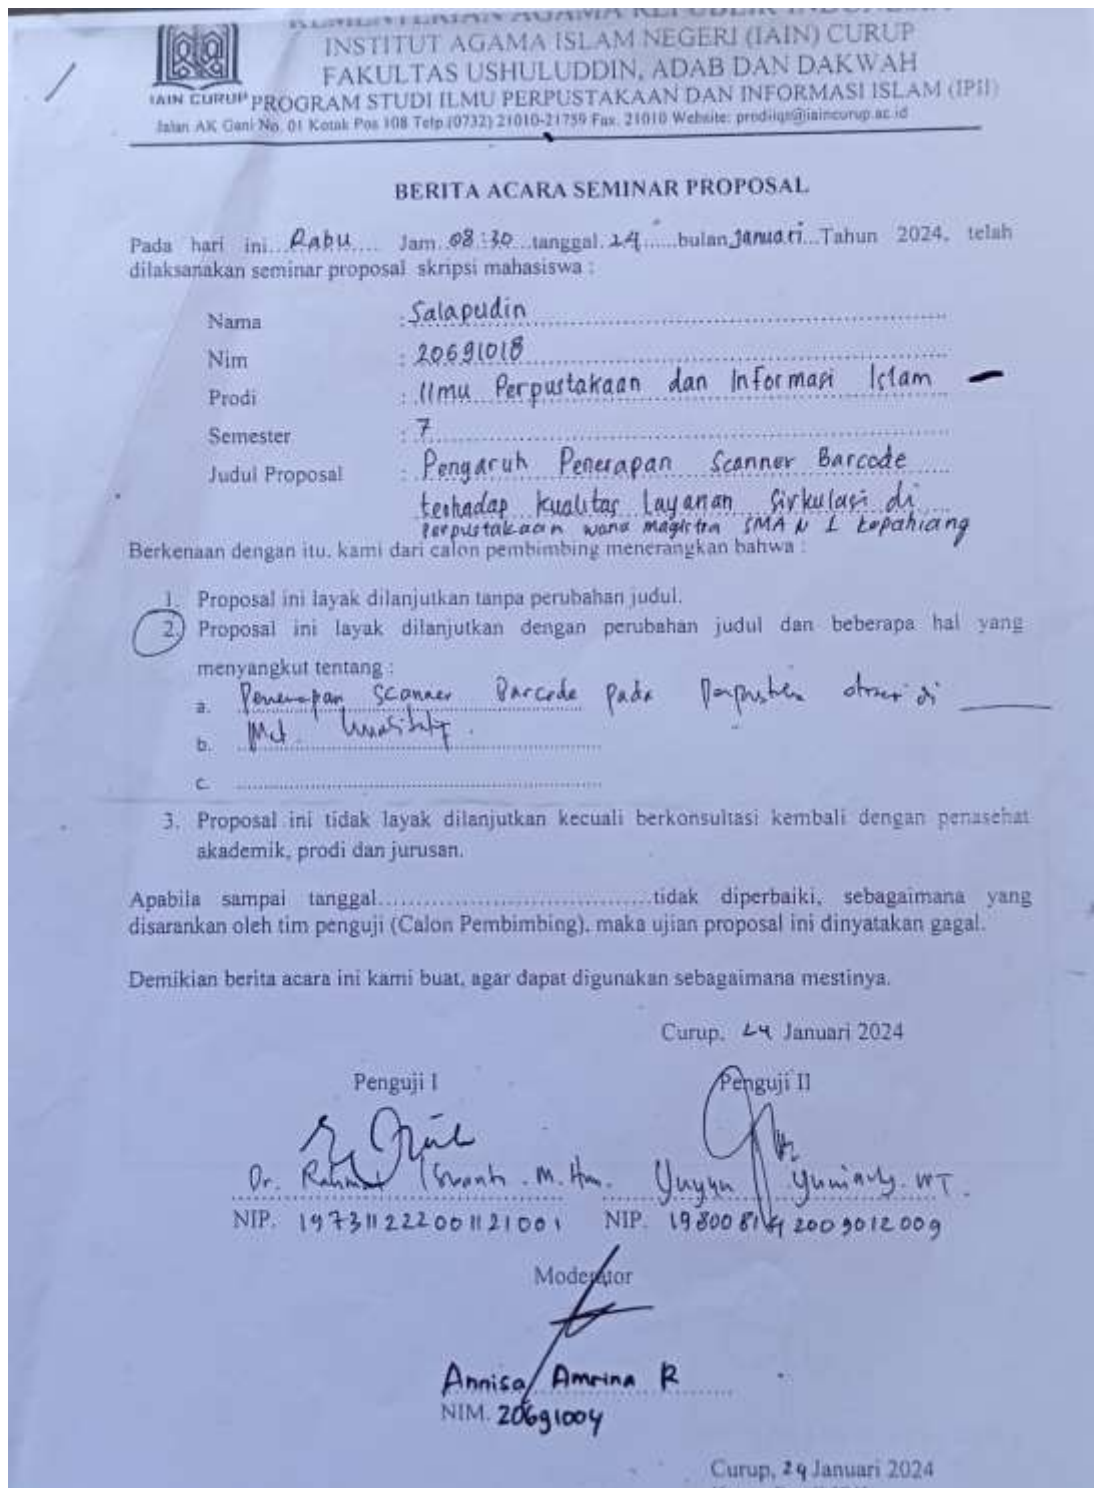 KEMENTERIAN AGAMA REPUBLIK INDONESIA
INSTITUT AGAMA ISLAM NEGERI (IAIN) CURUP
FAKULTAS USHULUDDIN, ADAB DAN DAKWAH
IAIN CURUP PROGRAM STUDI ILMU PERPUSTAKAAN DAN INFORMASI ISLAM (IPII)
Jalan AK Gani No. 01 Kotak Pos 108 Telp.(0732) 21010-21759 Fax. 21010 Website: prodiiqt@iaincurup.ac.id
BERITA ACARA SEMINAR PROPOSAL
Pada hari ini...Rabu.... Jam.08:30...tanggal.24......bulan.Januari...Tahun 2024, telah
dilaksanakan seminar proposal skripsi mahasiswa :
Nama : Salapudin
Nim : 20691018
Prodi : Ilmu Perpustakaan dan Informasi Islam
Semester : 7
Judul Proposal : Pengaruh Penerapan Scanner Barcode
terhadap kualitas Layanan Sirkulasi di
Perpustakaan wana magistra SMA N 1 kepahiang
Berkenaan dengan itu, kami dari calon pembimbing menerangkan bahwa :
1. Proposal ini layak dilanjutkan tanpa perubahan judul.
2. Proposal ini layak dilanjutkan dengan perubahan judul dan beberapa hal yang
menyangkut tentang :
a. Penerapan Scanner Barcode pada di
b. Met. Kualitatif.
c.
3. Proposal ini tidak layak dilanjutkan kecuali berkonsultasi kembali dengan penasehat
akademik, prodi dan jurusan.
Apabila sampai tanggal....................................tidak diperbaiki, sebagaimana yang
disarankan oleh tim penguji (Calon Pembimbing), maka ujian proposal ini dinyatakan gagal.
Demikian berita acara ini kami buat, agar dapat digunakan sebagaimana mestinya.
Curup, 24 Januari 2024
Penguji I Penguji II
Dr. Rahmat Iswanto. M. Hum. Yuyun Yumiarty. MT.
NIP. 197311222001121001 NIP. 198008142009012009
Moderator
Annisa Amrina R
NIM. 20691004
Curup, 24 Januari 2024